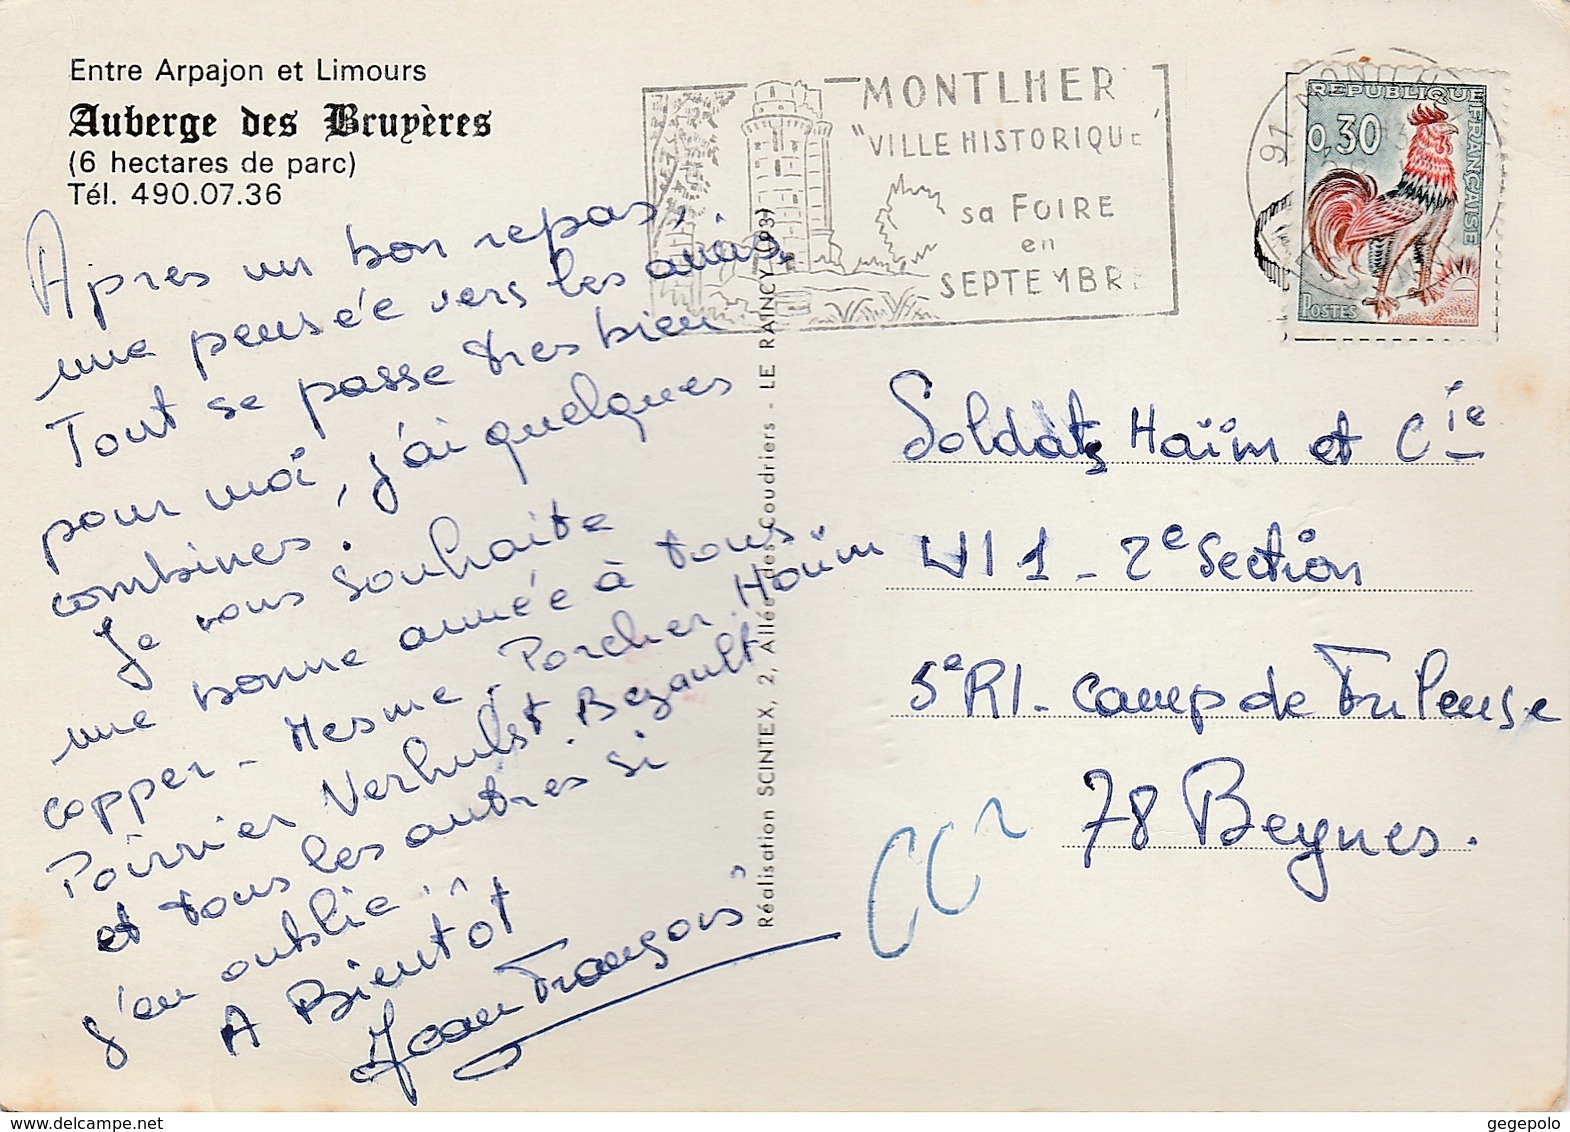 Entre Arpajon et Limours
Auberge des Bruyères
(6 hectares de parc)
Tél. 490.07.36
Après un bon repas,
une pensée vers les amis,
Tout se passe très bien
pour moi, j'ai quelques
combines.
Je vous souhaite
une bonne année à tous
copper - Mesme - Porcher. Haïm
Poirrier Verhulst. Bezault
et tous les autres si
j'en oublie...
A Bientôt
Jean François
Réalisation SCINTEX, 2, Allée des Coudriers - LE RAINCY (93)
MONTLHER
"VILLE HISTORIQUE"
sa FOIRE
en
SEPTEMBRE
91
REPUBLIQUE FRANÇAISE
0,30
POSTES
DECARIS
Soldats Haïm et Cie
CI 1 - 2e Section
5e RI - Camp de Frileuse
78 Beynes.
delcampe.net
gegepolo